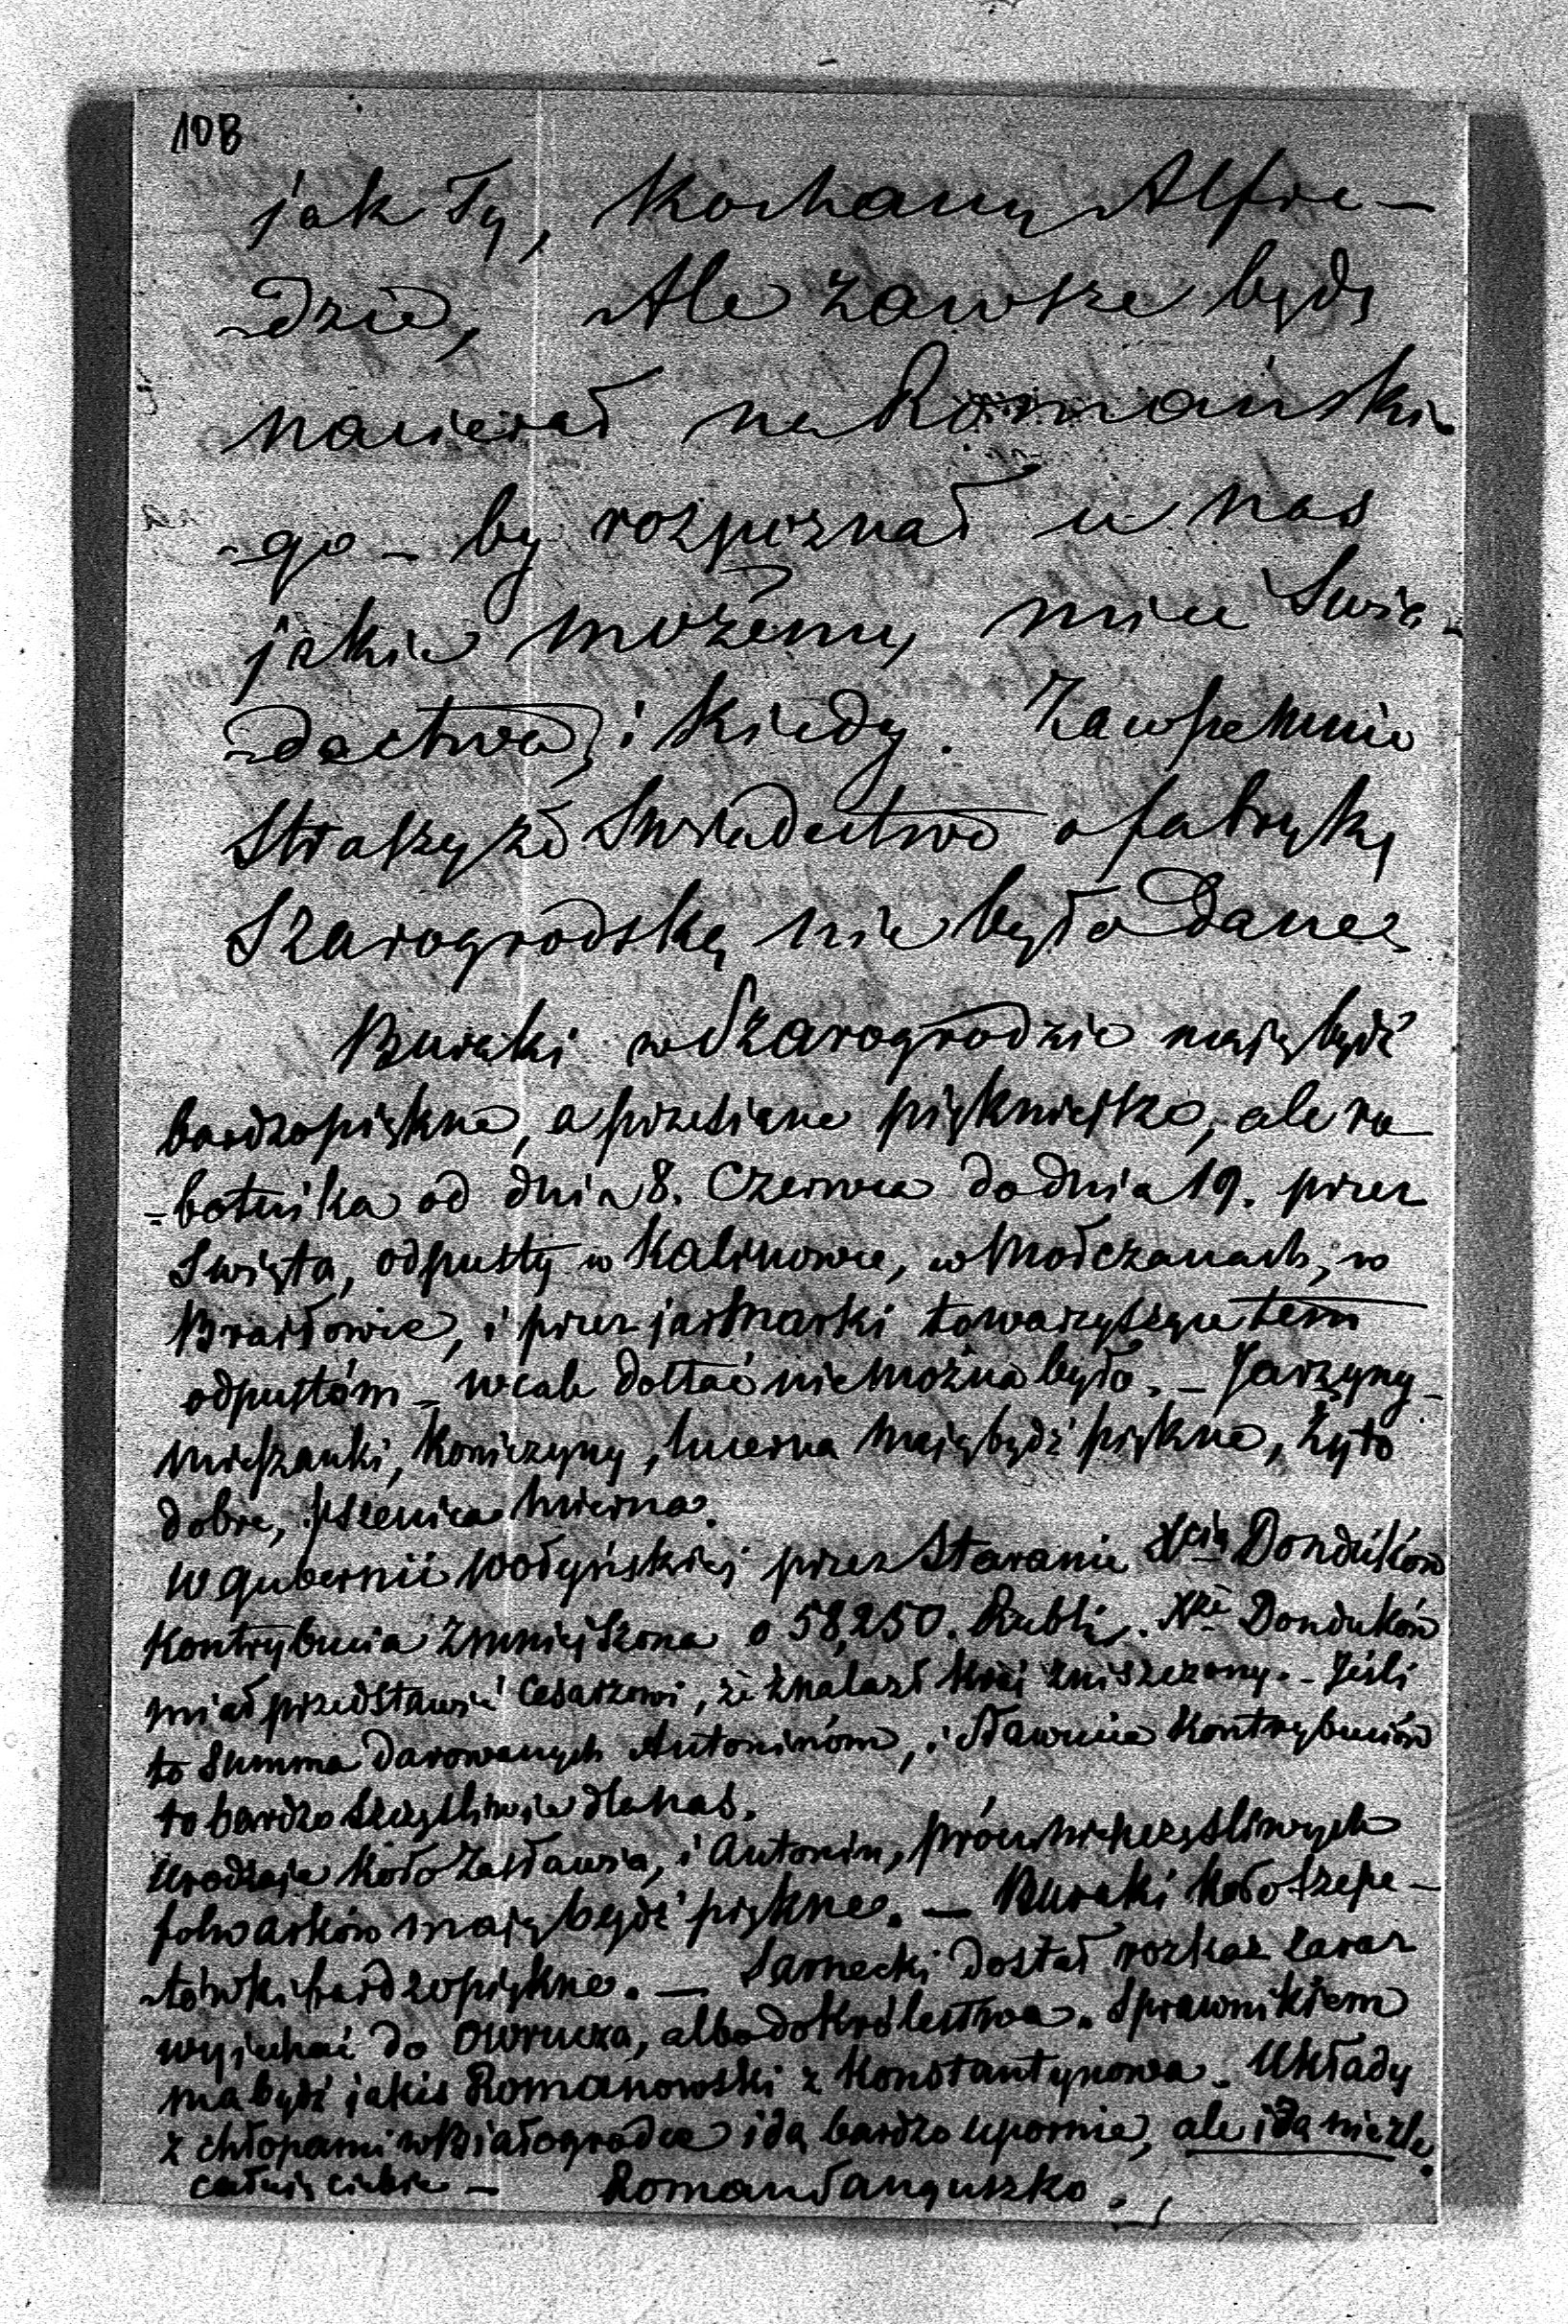 108
jak Ty, Kochany Alfre-
-dzie, Ale zawsze będę
nacierał na Romański-
-go – by rozpoznał u nas
jakie możemy mieć Swia-
-dectwa, i kiedy. Zawsze mnie
Straszy że Swiadectwo o fabrykę
Szarogrodską nie było Dane
Buraki w Szarogrodzie mają bydź
bardzo piękne, a przesiane piękniejsze, ale ro
-botnika od dnia 8. Czerwca do dnia 19. przez
Swięta, odpusty w Kalinowce, w Mołczanach, w
Braiłowie, i przez jarmarki towarzyszące tem
odpustóm – wcale dostać nie można było. – Jarzyny –
mieszanki, Koniczyny, lucerna mają bydź piękne, Żyto
dobre, pszenica mierna.
W gubernii Wołyńskiej przez Staranie Xcia Donduków
Kontrybucia zmniejszona o 58,250. Rubli. Xże Donduków
miał przedstawić Cesarzowi, że znalazł Kraj zniszczony. – Jeśli
to Summa darowanych Antoninóm, i Sławucie Kontrybuciów
to bardzo szczęśliwie dla nas.
Urodzaje koło Zasławia, i Antonin, prócz nieszczęśliwych
folwarków mają bydź piękne. – Buraki koło Szepe-
-tówki bardzo piękne. – Sarnecki dostał rozkaz zaraz
wyjechać do Owrucza, albo do Królestwa. Sprawnikiem
ma bydź jakis Romanowski z Konstantynowa. Układy
z chłopami w Białogrodce idą bardzo upornie, ale idą nieźle.
całuię ciebie – Roman Sanguszko.